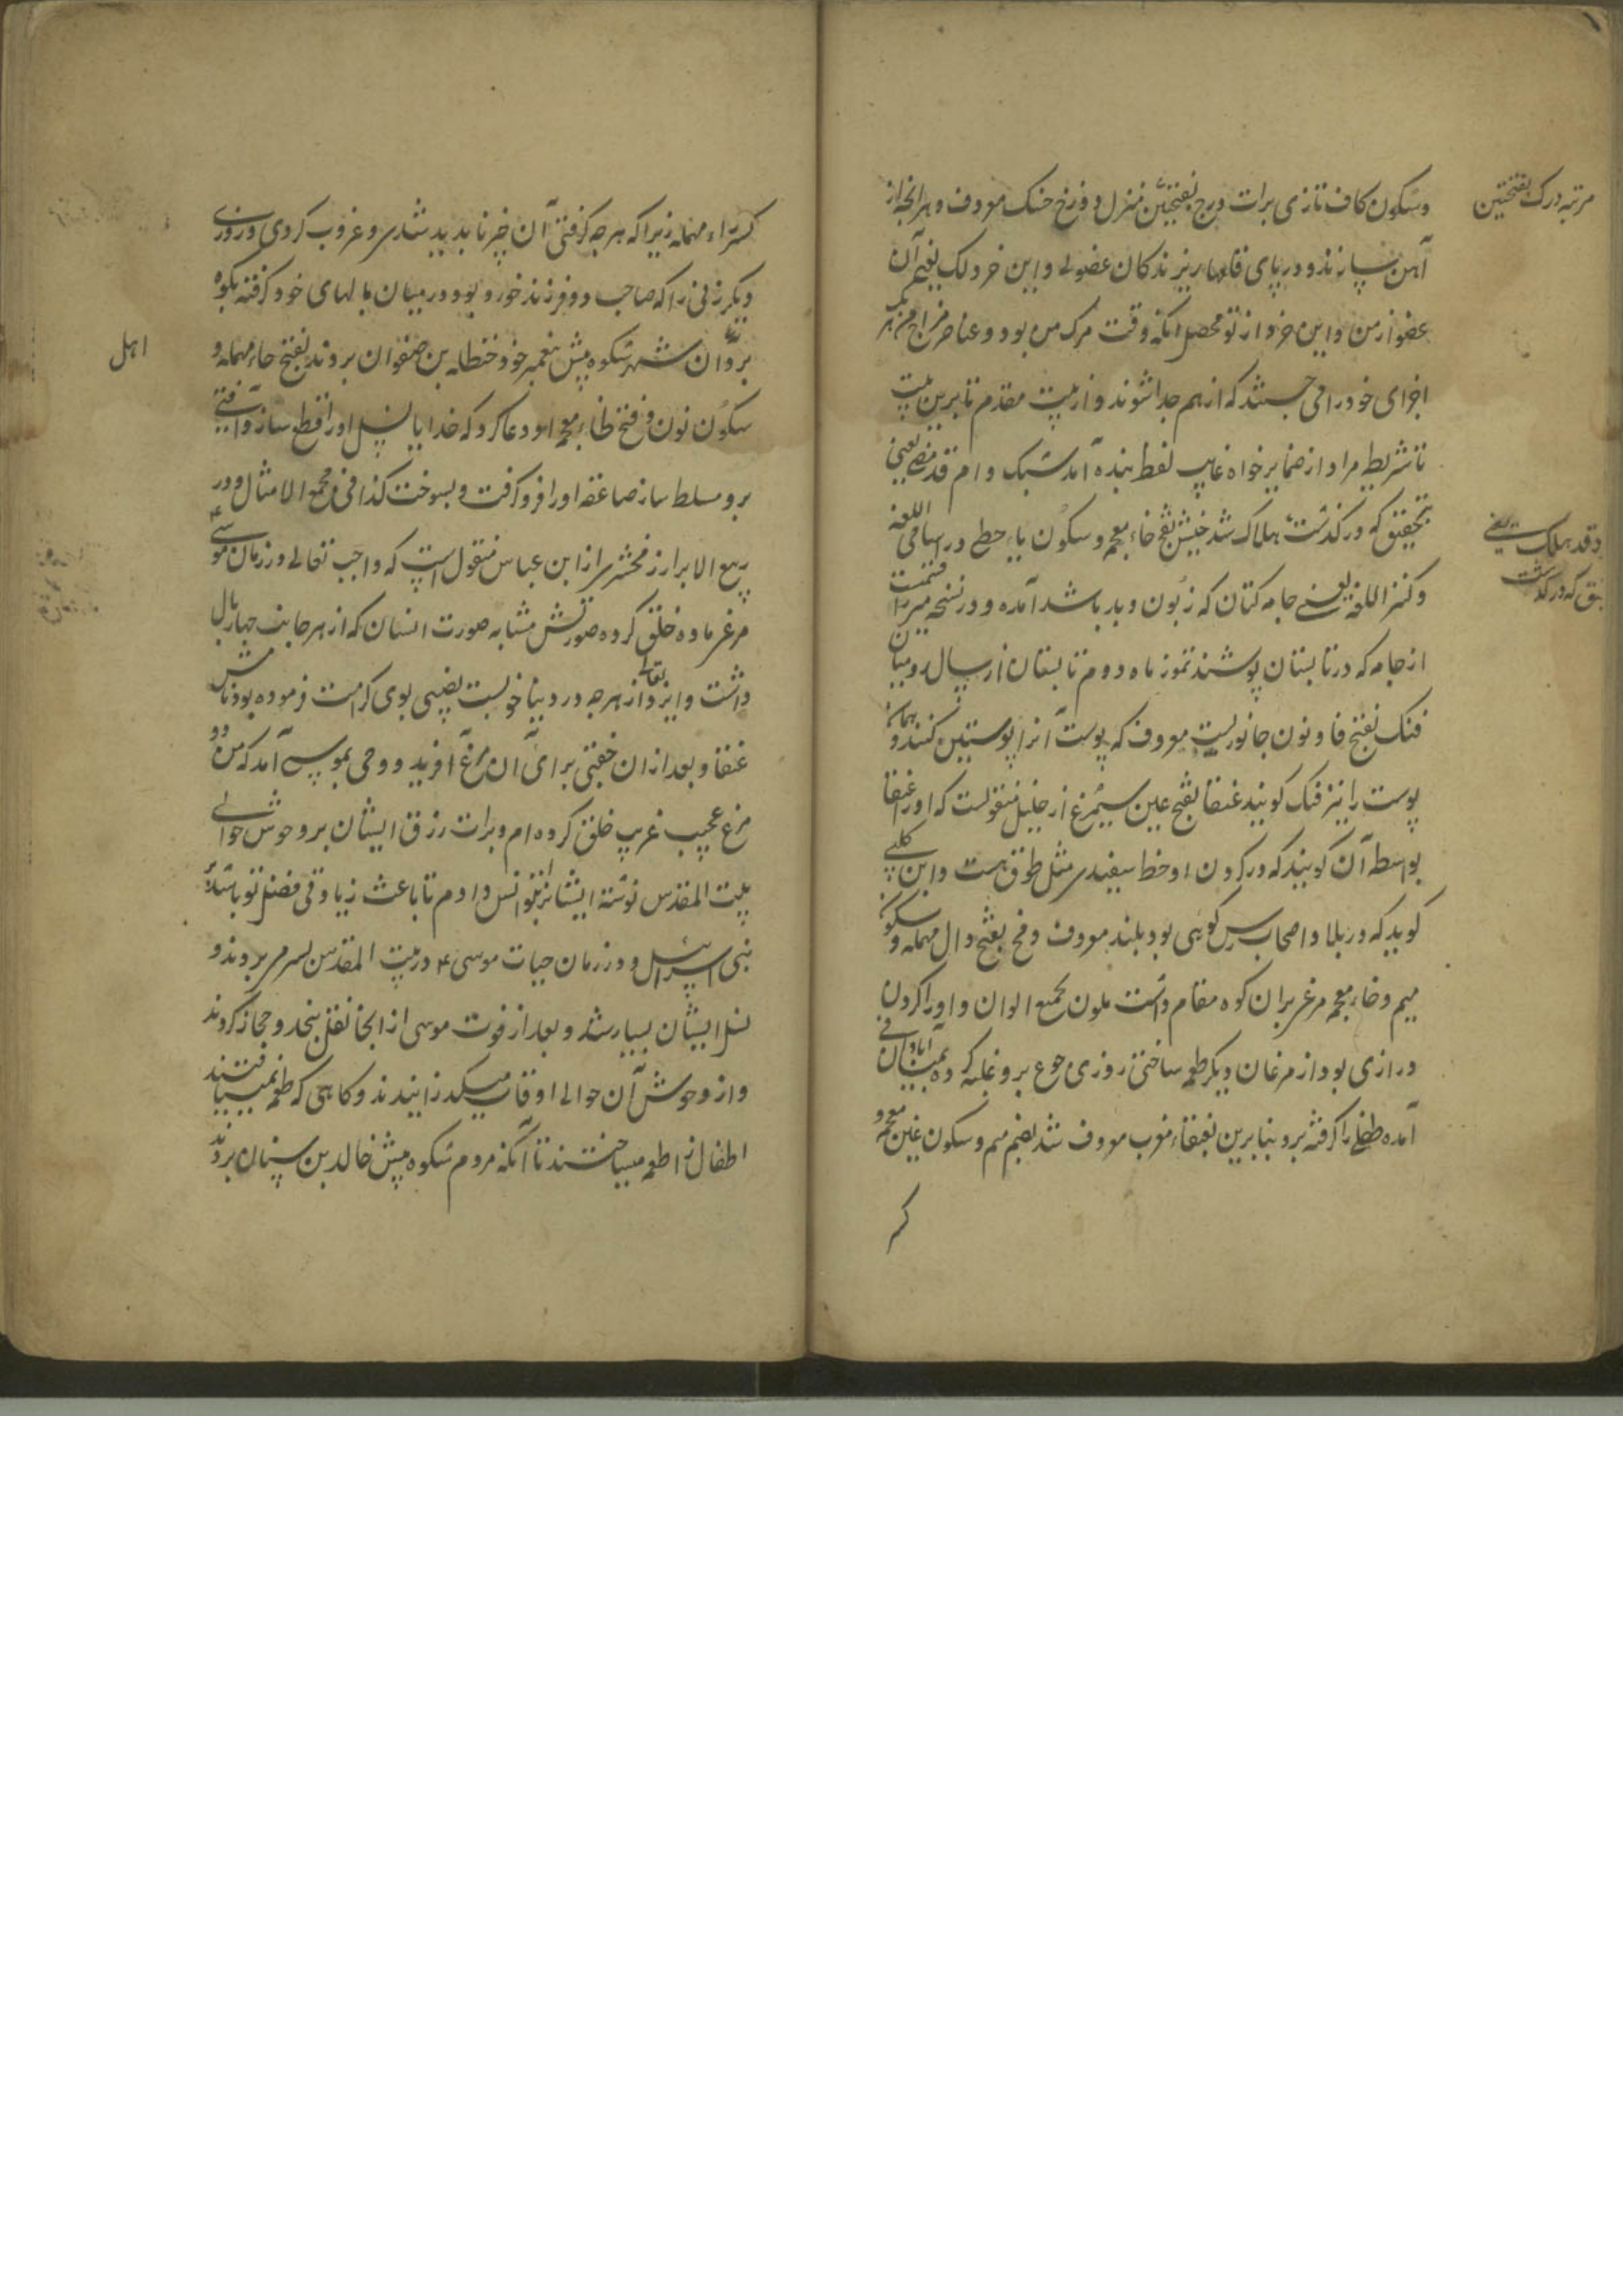 مرتبه درک بفتحتین
وسکون کاف تازی برات درج بفتحتین منزل دوزخ خسک معروف و هر آنچه از
آهن سازند و در پای قلعها ریزند کان عضو لی و این خر دلک یعنی آن
عضو از من و این جزو از تو محصل آنکه وقت مرک من بود و عناصر مزاج من
اجزای خود را می جستند که از هم جدا شوند و از بیت مقدم تا برین بیت
تا شریطه مراد از ضمایر خواه غایب لفظ بنده آمد سبک و ام قد مضی یعنی
بتحقیق که در کذشت هلاک شد خیش بفتح خاء معجمه و سکون یاء حطی در اسامی اللغه
وقد هلک یعنی
تحقیق که در کذشت
و کنز اللغه یعنی جامه کتان که زبون و بد باشد آمده و در نسخه میرزا
از جامه که در تابستان پوشند تموز ماه دوم تابستان از سال رومیان
فنک بفتح فا و نون جانوریست معروف که پوست آنرا پوستین کنند و همان
پوست را نیز فنک کویند عنقا بفتح عین سیمرغ از خلیل منقولست که او را عنقا
بواسطه آن کویند که در کردن او خط سفیدی مثل طوق هست و ابن کلبی
کوید که در بلاد اصحاب رس کوهی بود بلند معروف دمخ بفتح دال مهمله و سکون
میم و خاء معجمه مرغی بران کوه مقام داشت ملون بجمیع الوان و او را کردن
درازی بود از مرغان دیکر طعمه ساختی روزی جوع برو غلبه کرده
آمده طفلی را کرفته برد بنابرین بعنقاء مغرب معروف شد بضم میم و سکون غین معجمه و
کسر
کسر راء مهمله زیرا که هر چه کرفتی آن چیز ناپدید شدی و غروب کردی و روزی
دیکر زنی را که صاحب دو فرزند خورد بود در میان بالهای خود کرفته بکوه
برد آن شهر شکوه پیش پیغمبر خود حنظله بن صفوان بردند بفتح حاء مهمله و
اهل
سکون نون و فتح ظاء معجمه او دعا کرد که خدایا نسل او را قطع ساز و آفتی
برو مسلط ساز صاعقه او را فرو کرفت و بسوخت کذا فی مجمع الامثال و در
ربیع الابرار زمخشری از ابن عباس منقول است که واجب تعالی در زمان موسی
مرغی ماده خلق کرده صورتش مشابه صورت انسان که از هر جانب چهار بال
داشت و ایزد تعالی از هر چه در دنیا خوبست نصیبی بوی کرامت فرموده بود نامش
عنقا و بعد از ان جفتی برای آن مرغ آفرید و وحی بموسی آمد که من دو
مرغ عجیب غریب خلق کرده ام و برات رزق ایشان بر وحوش حوالی
بیت المقدس نوشته ایشانرا بتو انس دادم تا باعث زیادتی فضل تو باشد بر
بنی اسرائیل و در زمان حیات موسی ع در بیت المقدس بسر می بردند و
نسل ایشان بسیار شد و بعد از فوت موسی از انجا نقل بنجد و حجاز کردند
و از وحوش آن حوالی اوقات میکذرانیدند و کاهی که طعمه نمییافتند
اطفال را طعمه میساختند تا آنکه مردم شکوه پیش خالد بن سنان بردند